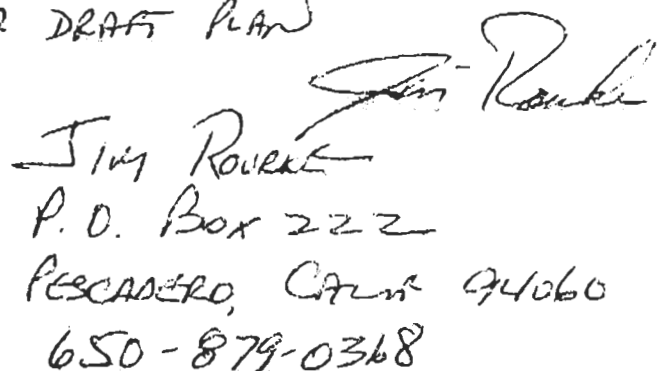 DRAFT PLAN
Jim Rourke
JIM ROURKE
P.O. BOX 222
PESCADERO, CALIF 94060
650-879-0368